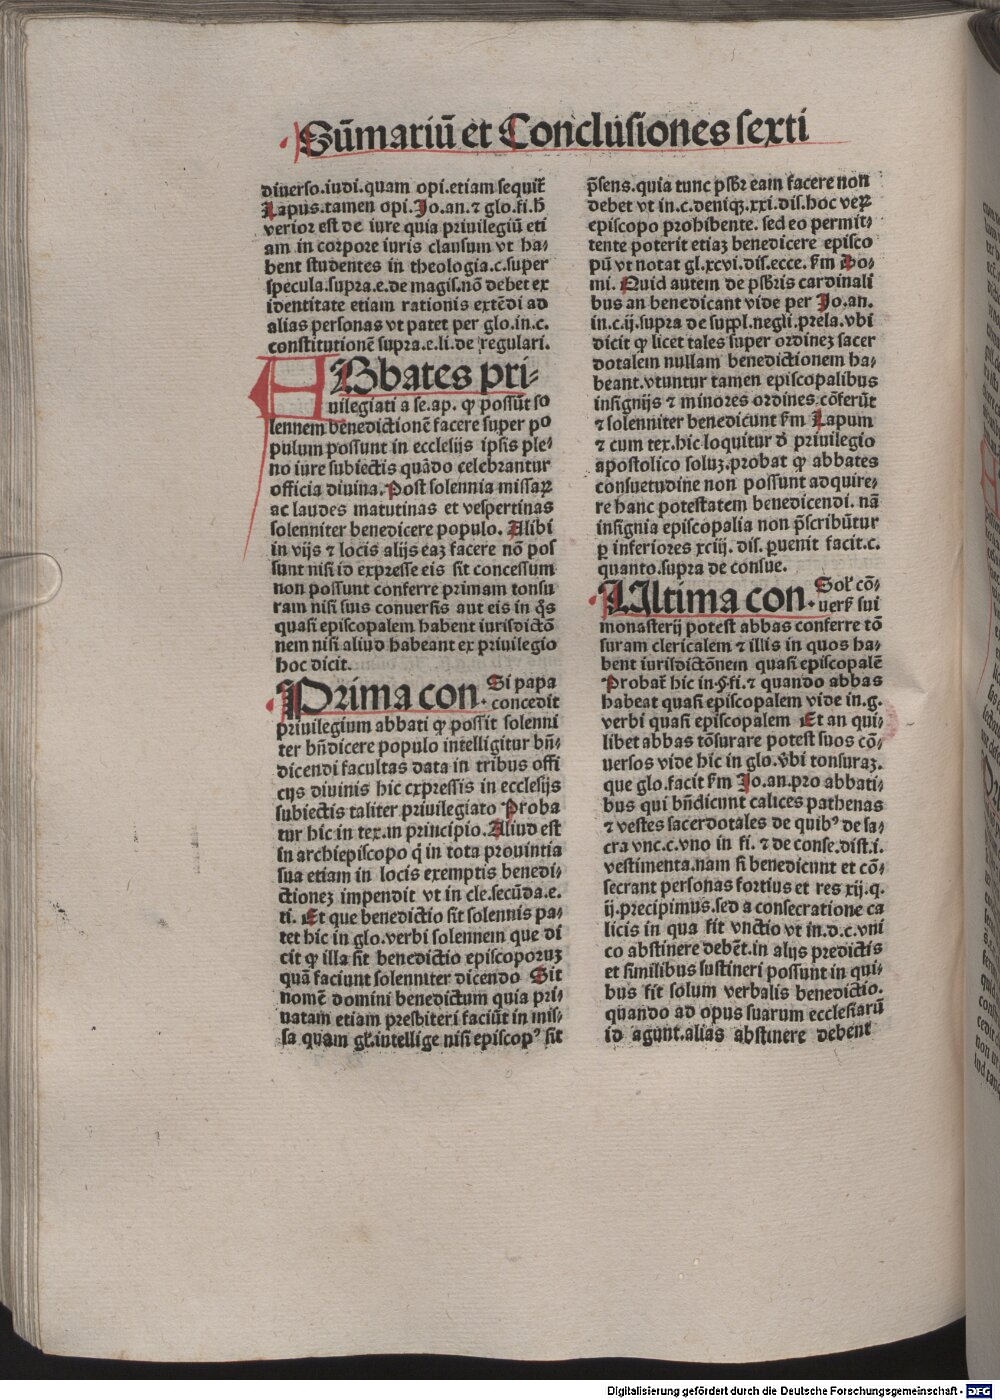 Sūmariū et Conclusiones sexti
diuerso.iudi.quam opi.etiam sequit᷑
Lapus.tamen opi.Jo.an.⁊ glo.fi.h̄
verior est de iure quia priuilegiū eti
am in corpore iuris clausum vt ha⸗
bent studentes in theologia.c.super
specula.supra.e.de magis.nō debet ex
identitate etiam rationis extēdi ad
alias personas vt patet per glo.in.c.
constitutionē supra.e.li.de regulari.
ABbates pri⸗
uilegiati a se.ap. ꝙ possūt so
lennem benedictionē facere super po
pulum possunt in ecclesijs ipsis ple⸗
no iure subiectis quādo celebrantur
officia diuina.Post solennia missaꝝ
ac laudes matutinas et vespertinas
solenniter benedicere populo. Alibi
in vijs ⁊ locis alijs eaꝫ facere nō pos
sunt nisi id expresse eis sit concessum
non possunt conferre primam tonsu
ram nisi suis conuersis aut eis in q̄s
quasi episcopalem habent iurisdictō
nem nisi aliud habeant ex priuilegio
hoc dicit.
Prima con. Si papa
concedit
priuilegium abbati ꝙ possit solenni
ter bn̄dicere populo intelligitur bn̄⸗
dicendi facultas data in tribus offi
cijs diuinis hic expressis in ecclesijs
subiectis taliter priuilegiato Proba
tur hic in tex.in principio.Aliud est
in archiepiscopo q̄ in tota prouintia
sua etiam in locis exemptis benedi⸗
ctioneꝫ impendit vt in cle.secūda.e.
ti. Et que benedictio sit solennis pa⸗
tet hic in glo.verbi solennem que di
cit ꝙ illa sit benedictio episcoporuꝫ
quā faciunt solenniter dicendo Sit
nomē domini benedictum quia pri⸗
uatam etiam presbiteri faciūt in mis⸗
sa quam gl̄r.intellige nisi episcopꝰ sit
p̄sens.quia tunc psb̄r eam facere non
debet vt in.c.deniqꝫ.xxi.dis.hoc veꝝ
episcopo prohibente. sed eo permit⸗
tente poterit etiaꝫ benedicere episco
pū vt notat gl.xcvi.dis.ecce. s̄m Do⸗
mi. Quid autem de psb̄ris cardinali
bus an benedicant vide per Jo.an.
in.c.ij.supra de suppl.negli.prela.vbi
dicit ꝙ licet tales super ordineꝫ sacer
dotalem nullam benedictionem ha⸗
beant.vtuntur tamen episcopalibus
insignijs ⁊ minores ordines cōferūt
⁊ solenniter benedicunt s̄m Lapum
⁊ cum tex.hic loquitur d̄ priuilegio
apostolico soluꝫ.probat ꝙ abbates
consuetudine non possunt adquire⸗
re hanc potestatem benedicendi. nā
insignia episcopalia non p̄scribūtur
ꝑ inferiores xciij. dis. ꝑuenit facit.c.
quanto.supra de consue.
Ultima con. Sol᷑ cō⸗
uers᷑ sui
monasterij potest abbas conferre tō
suram clericalem ⁊ illis in quos ha⸗
bent iurisdictōnem quasi episcopalē
Probat᷑ hic in.§.fi.⁊ quando abbas
habeat quasi episcopalem vide in.g.
verbi quasi episcopalem Et an qui⸗
libet abbas tōsurare potest suos cō⸗
uersos vide hic in glo.v̄bi tonsuraꝫ.
que glo.facit s̄m Jo.an.pro abbati⸗
bus qui bn̄dicunt calices pathenas
⁊ vestes sacerdotales de quibꝰ de sa⸗
cra vnc.c.vno in fi. ⁊ de conse.dist.i.
vestimenta.nam si benedicunt et cō⸗
secrant personas fortius et res xij.q.
ij.precipimus.sed a consecratione ca
licis in qua fit vnctio vt in.d.c.vni
co abstinere debēt.in alijs predictis
et similibus sustineri possunt in qui⸗
bus fit solum verbalis benedictio.
quando ad opus suarum ecclesiarū
id agunt.alias abstinere debent
Digitalisierung gefördert durch die Deutsche Forschungsgemeinschaft - DFG